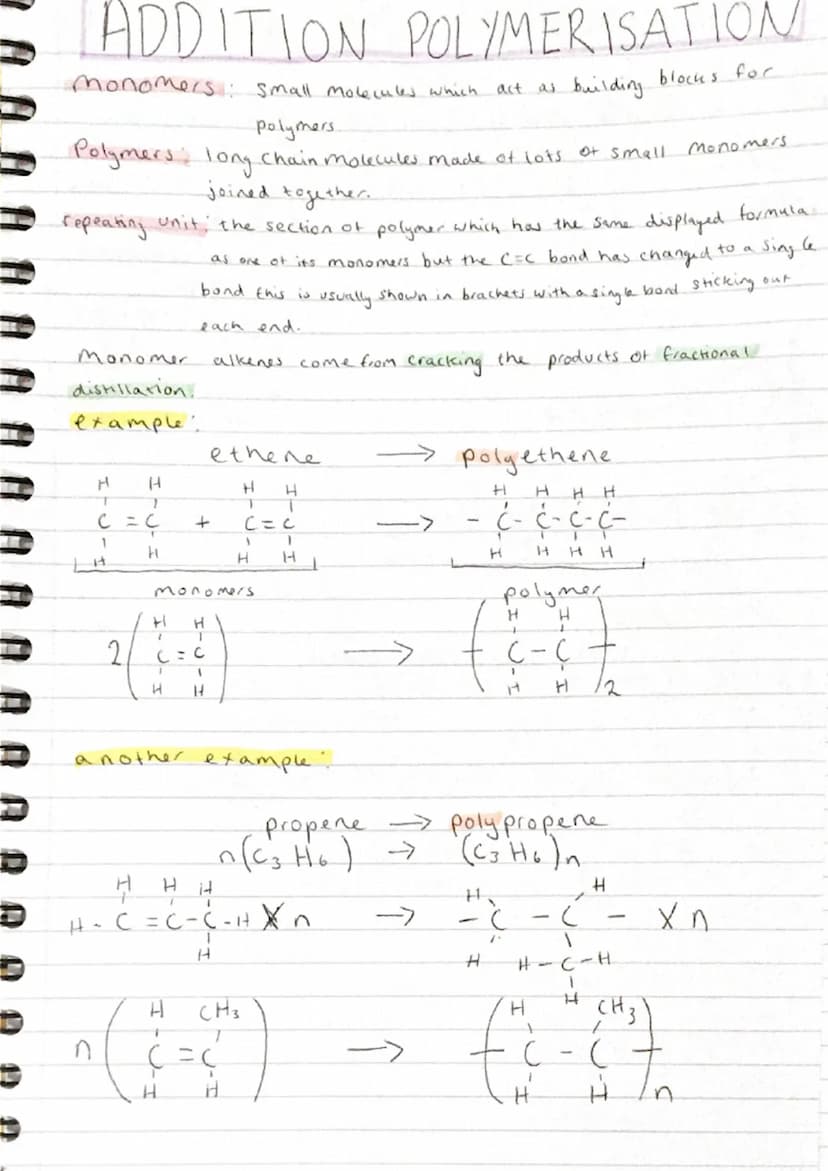 ADDITION POLYMERISATION
monomers: small molecules which act as building blocks for
polymers.
Polymers: long chain molecules made of lots of small monomers
joined together.
repeating unit: the section of polymer which has the same displayed formula
as one of its monomers but the C=C bond has changed to a single
bond this is usually shown in brackets with a single bond sticking out
each end.
Monomer alkenes come from cracking the products of fractional
distillation.
example:
ethene → polyethene
H H H H H H H H
C = C + C = C → - C - C - C - C -
H H H H H H H H
monomers polymer
H H H H
2( C = C ) → ( C - C )2
H H H H
another example:
propene → polypropene
n(C3 H6) → (C3 H6)n
H H H H H
H - C = C - C - H X n → - C - C - X n
H H H - C - H
H
H CH3 H CH3
n ( C = C ) → ( C - C )n
H H H H